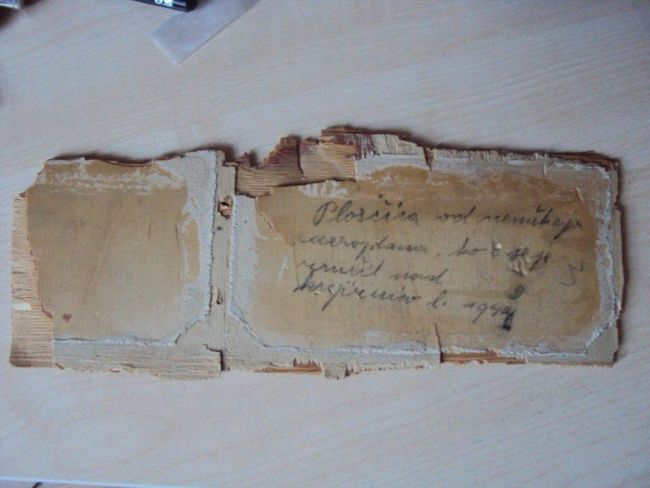 Ploščica od nemškega
aeroplana, ko se je
zrušil nad
l. 1944